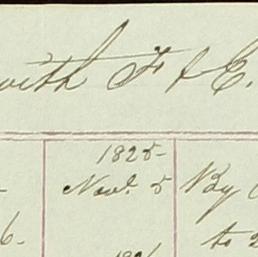 with F & E.
1825-
Nov.r 5 By
6.
to 2